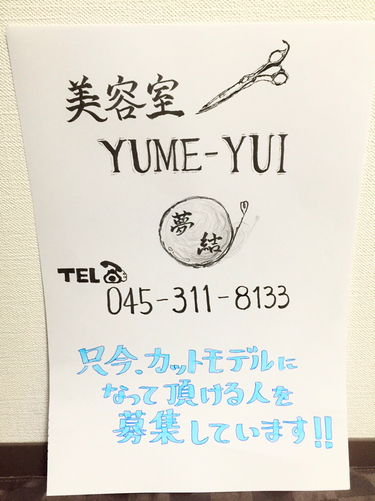 美容室
YUME-YUI
夢
結
TEL
045-311-8133
只今、カットモデルに
なって頂ける人を
募集しています!!